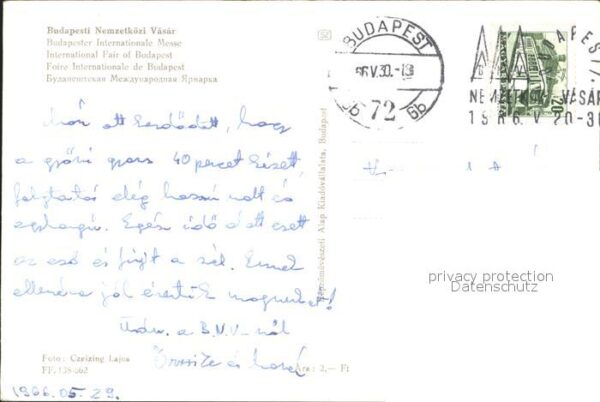 Budapesti Nemzetközi Vásár
Budapester Internationale Messe
International Fair of Budapest
Foire Internationale de Budapest
Будапештская Международная Ярмарка
BUDAPEST
66 V 30.-18
72
6b
NEMZETKÖZI VÁSÁR
1966. V 20-30
20
ott kezdődött, hogy
a győri gyors 40 percet késett,
folytatás elég hosszú volt és
Egész idő alatt esett
az eső és fújt a szél. Ennek
ellenére jól éreztük magunkat!
Üdv. a B.N.V.-ről
és
Képzőművészeti Alap Kiadóvállalata, Budapest
privacy protection
Datenschutz
Foto: Czeizing Lajos
FF. 138-662
Ára: 2,— Ft
1966.05.29.